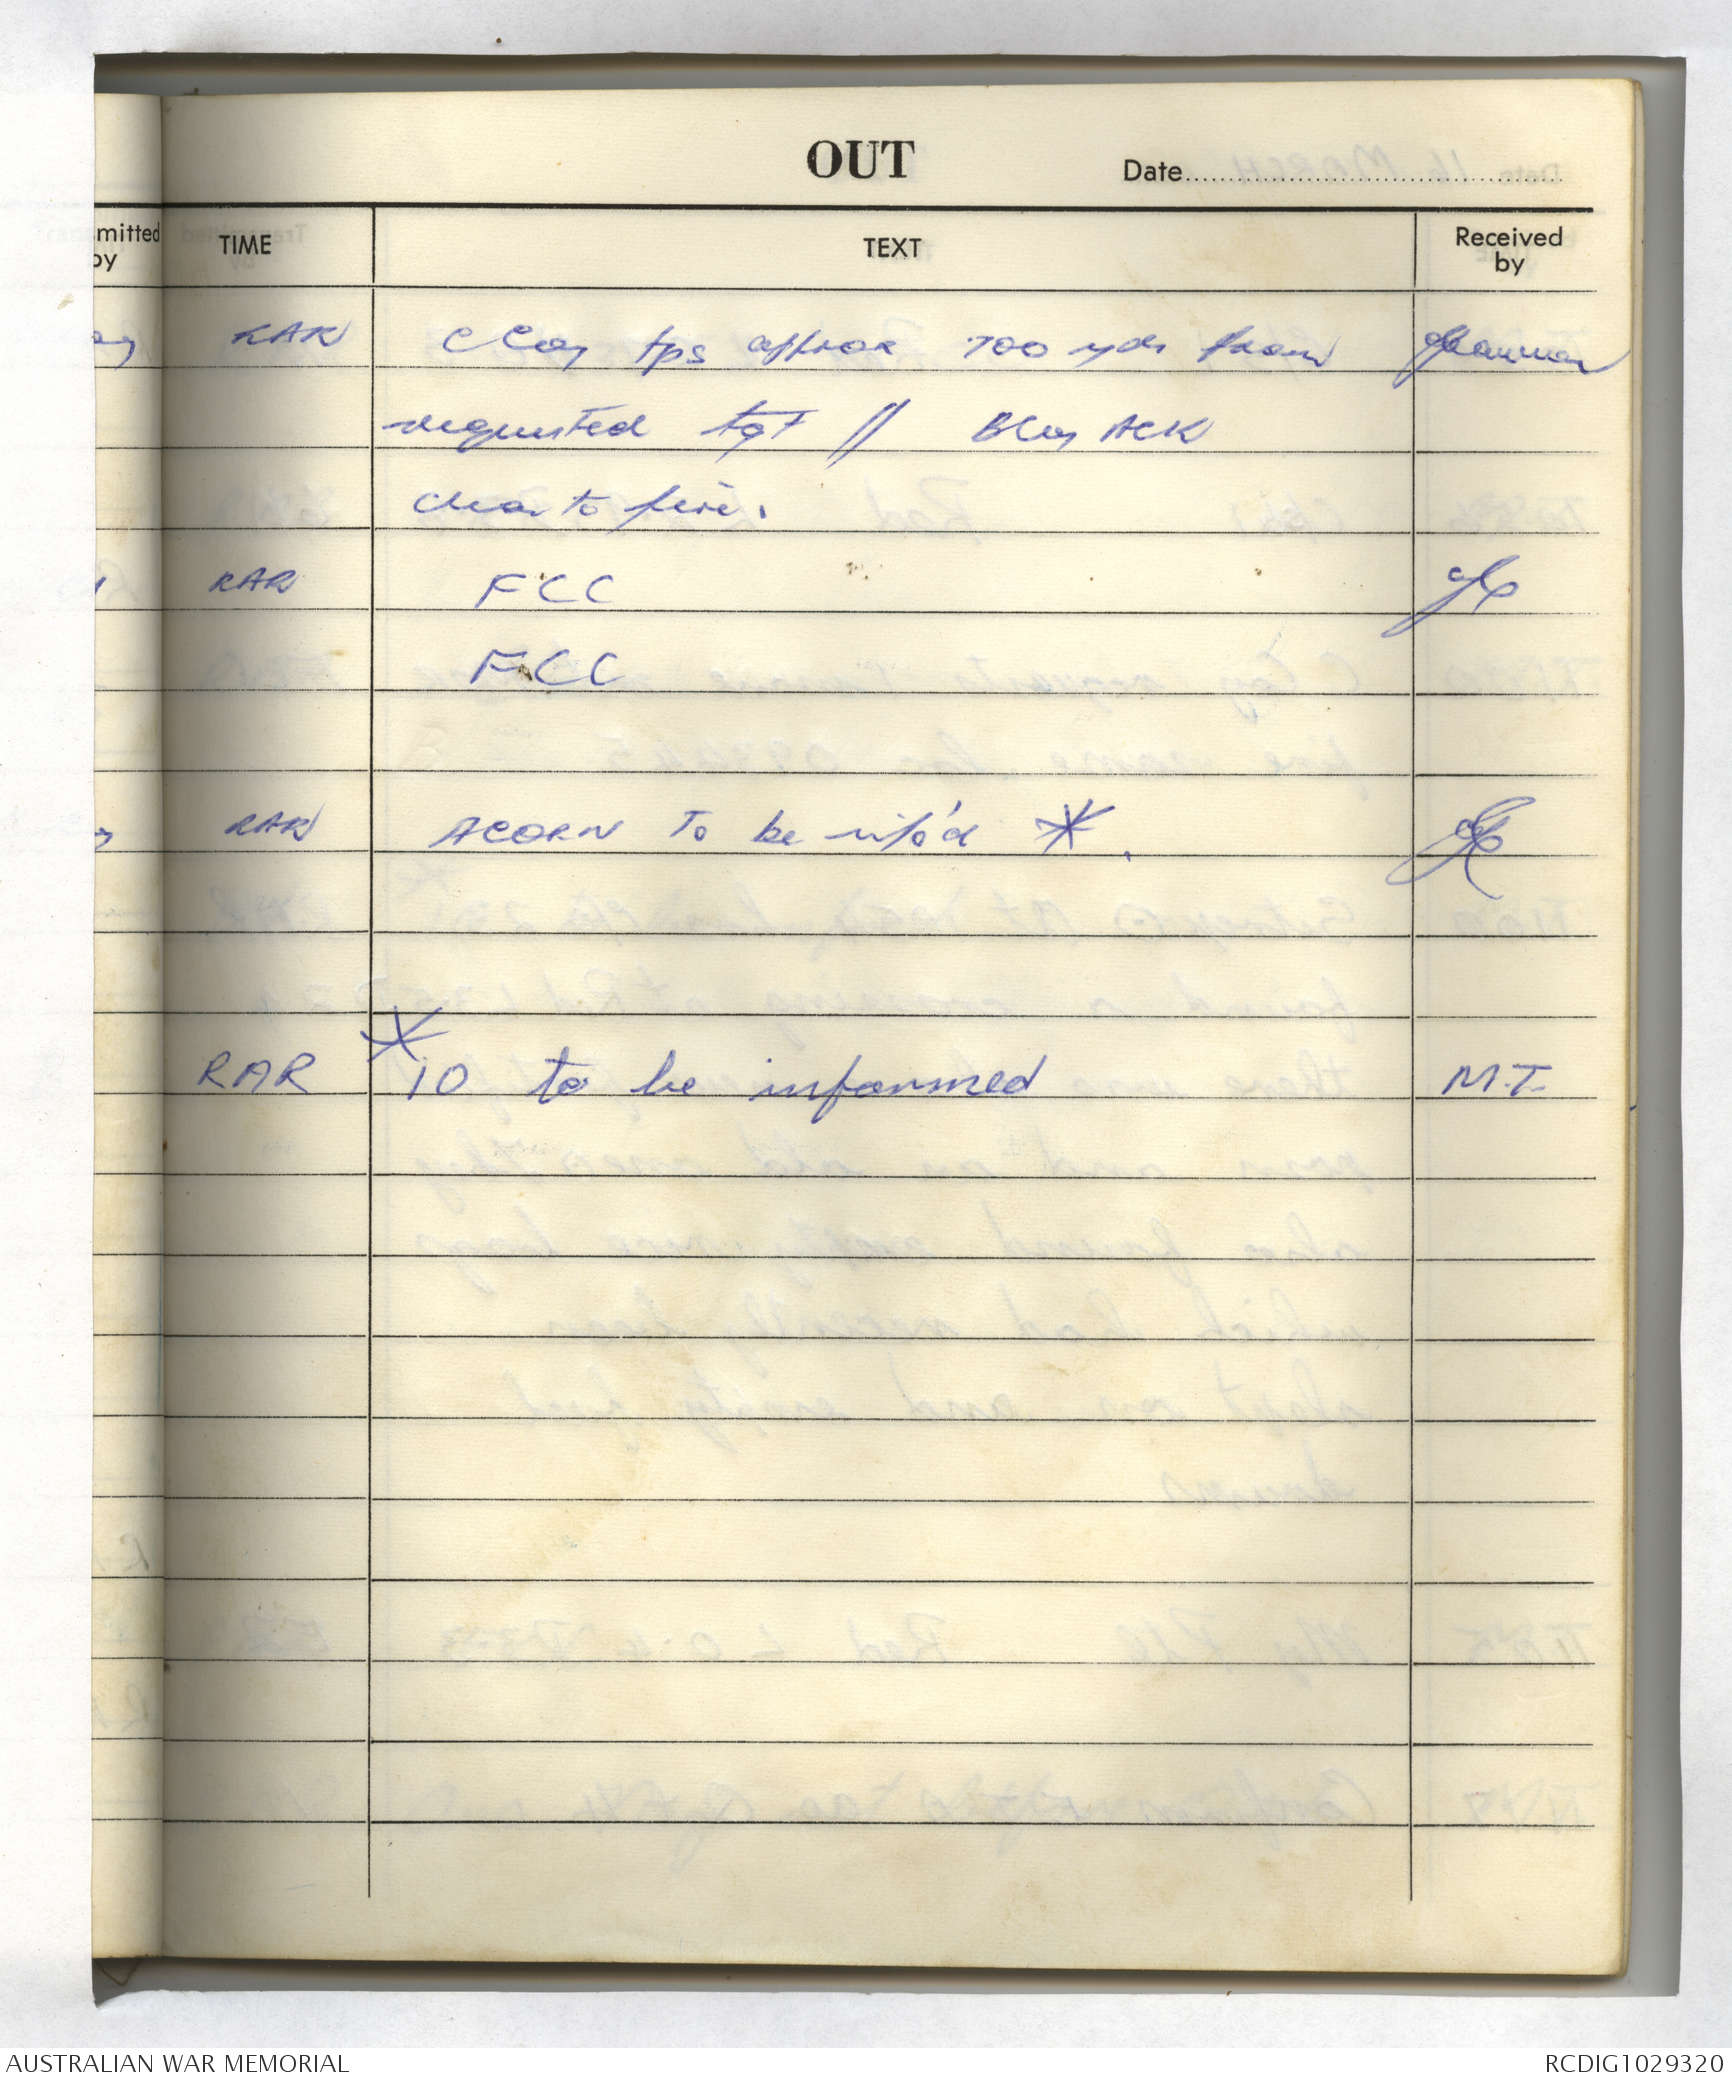 OUT
Date
mitted
by
TIME
TEXT
Received
by
RAR C Coy tps approx 700 yds from
requested tgt // B Coy ACK
clear to fire.
RAR FCC
FCC
RAR ACORN To be info'd *.
*
RAR IO to be informed M.T.
AUSTRALIAN WAR MEMORIAL
RCDIG1029320